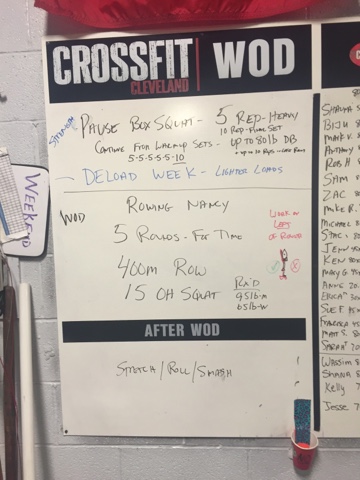 CROSSFIT | WOD
CLEVELAND
STRENGTH
PAUSE BOX SQUAT - 5 REP - HEAVY
10 REP - FINAL SET
CONTINUE FROM WARMUP SETS - UP TO 80lb DB
5-5-5-5-5-10
- DELOAD WEEK - LIGHTER LOADS
WOD
ROWING NANCY
5 ROUNDS - FOR TIME
400M ROW
15 OH SQUAT
WORK ON
LEFT
OF ROWER
RX'D
95lb-M
65lb-W
AFTER WOD
STRETCH / ROLL / SMASH
WEEKEND
BIJU
MARK
ANTHONY
ROB H
SAM
ZAC
MIKE R.
MICHAEL
KEN
MARY G
ANNE
ERICA
SUE F.
MATT S.
SARAH
WASSIM
SHANA
Kelly
Jesse